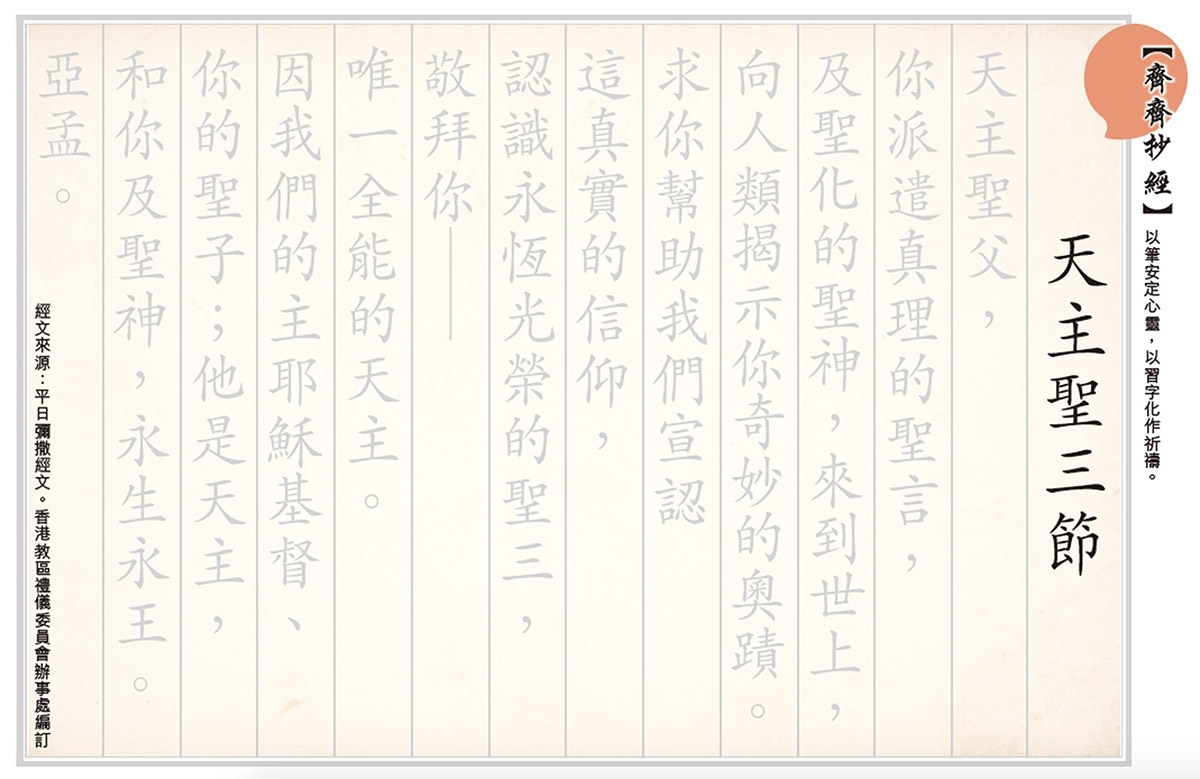 【齊齊抄經】以筆安定心靈，以習字化作祈禱。
天主聖三節
天主聖父，
你派遣真理的聖言，
及聖化的聖神，來到世上，
向人類揭示你奇妙的奧蹟。
求你幫助我們宣認
這真實的信仰，
認識永恆光榮的聖三，
敬拜你——
唯一全能的天主。
因我們的主耶穌基督、
你的聖子；他是天主，
和你及聖神，永生永王。
亞孟。
經文來源：平日彌撒經文。香港教區禮儀委員會辦事處編訂